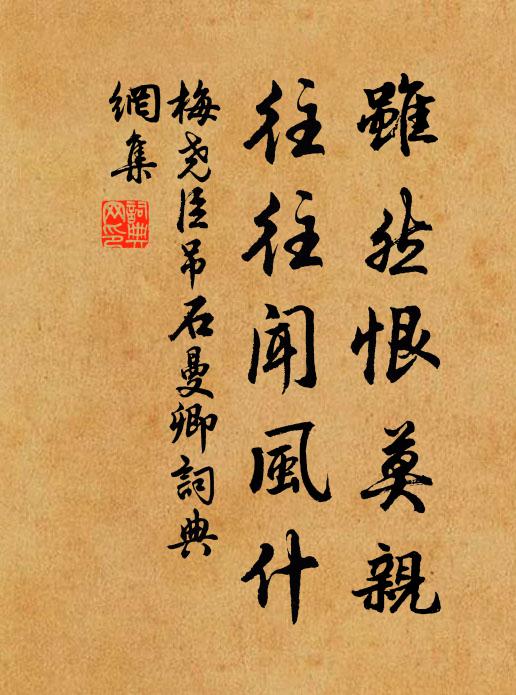 雖然恨莫親
往往聞風什
梅堯臣吊石曼卿詞典
網集
詞典網印